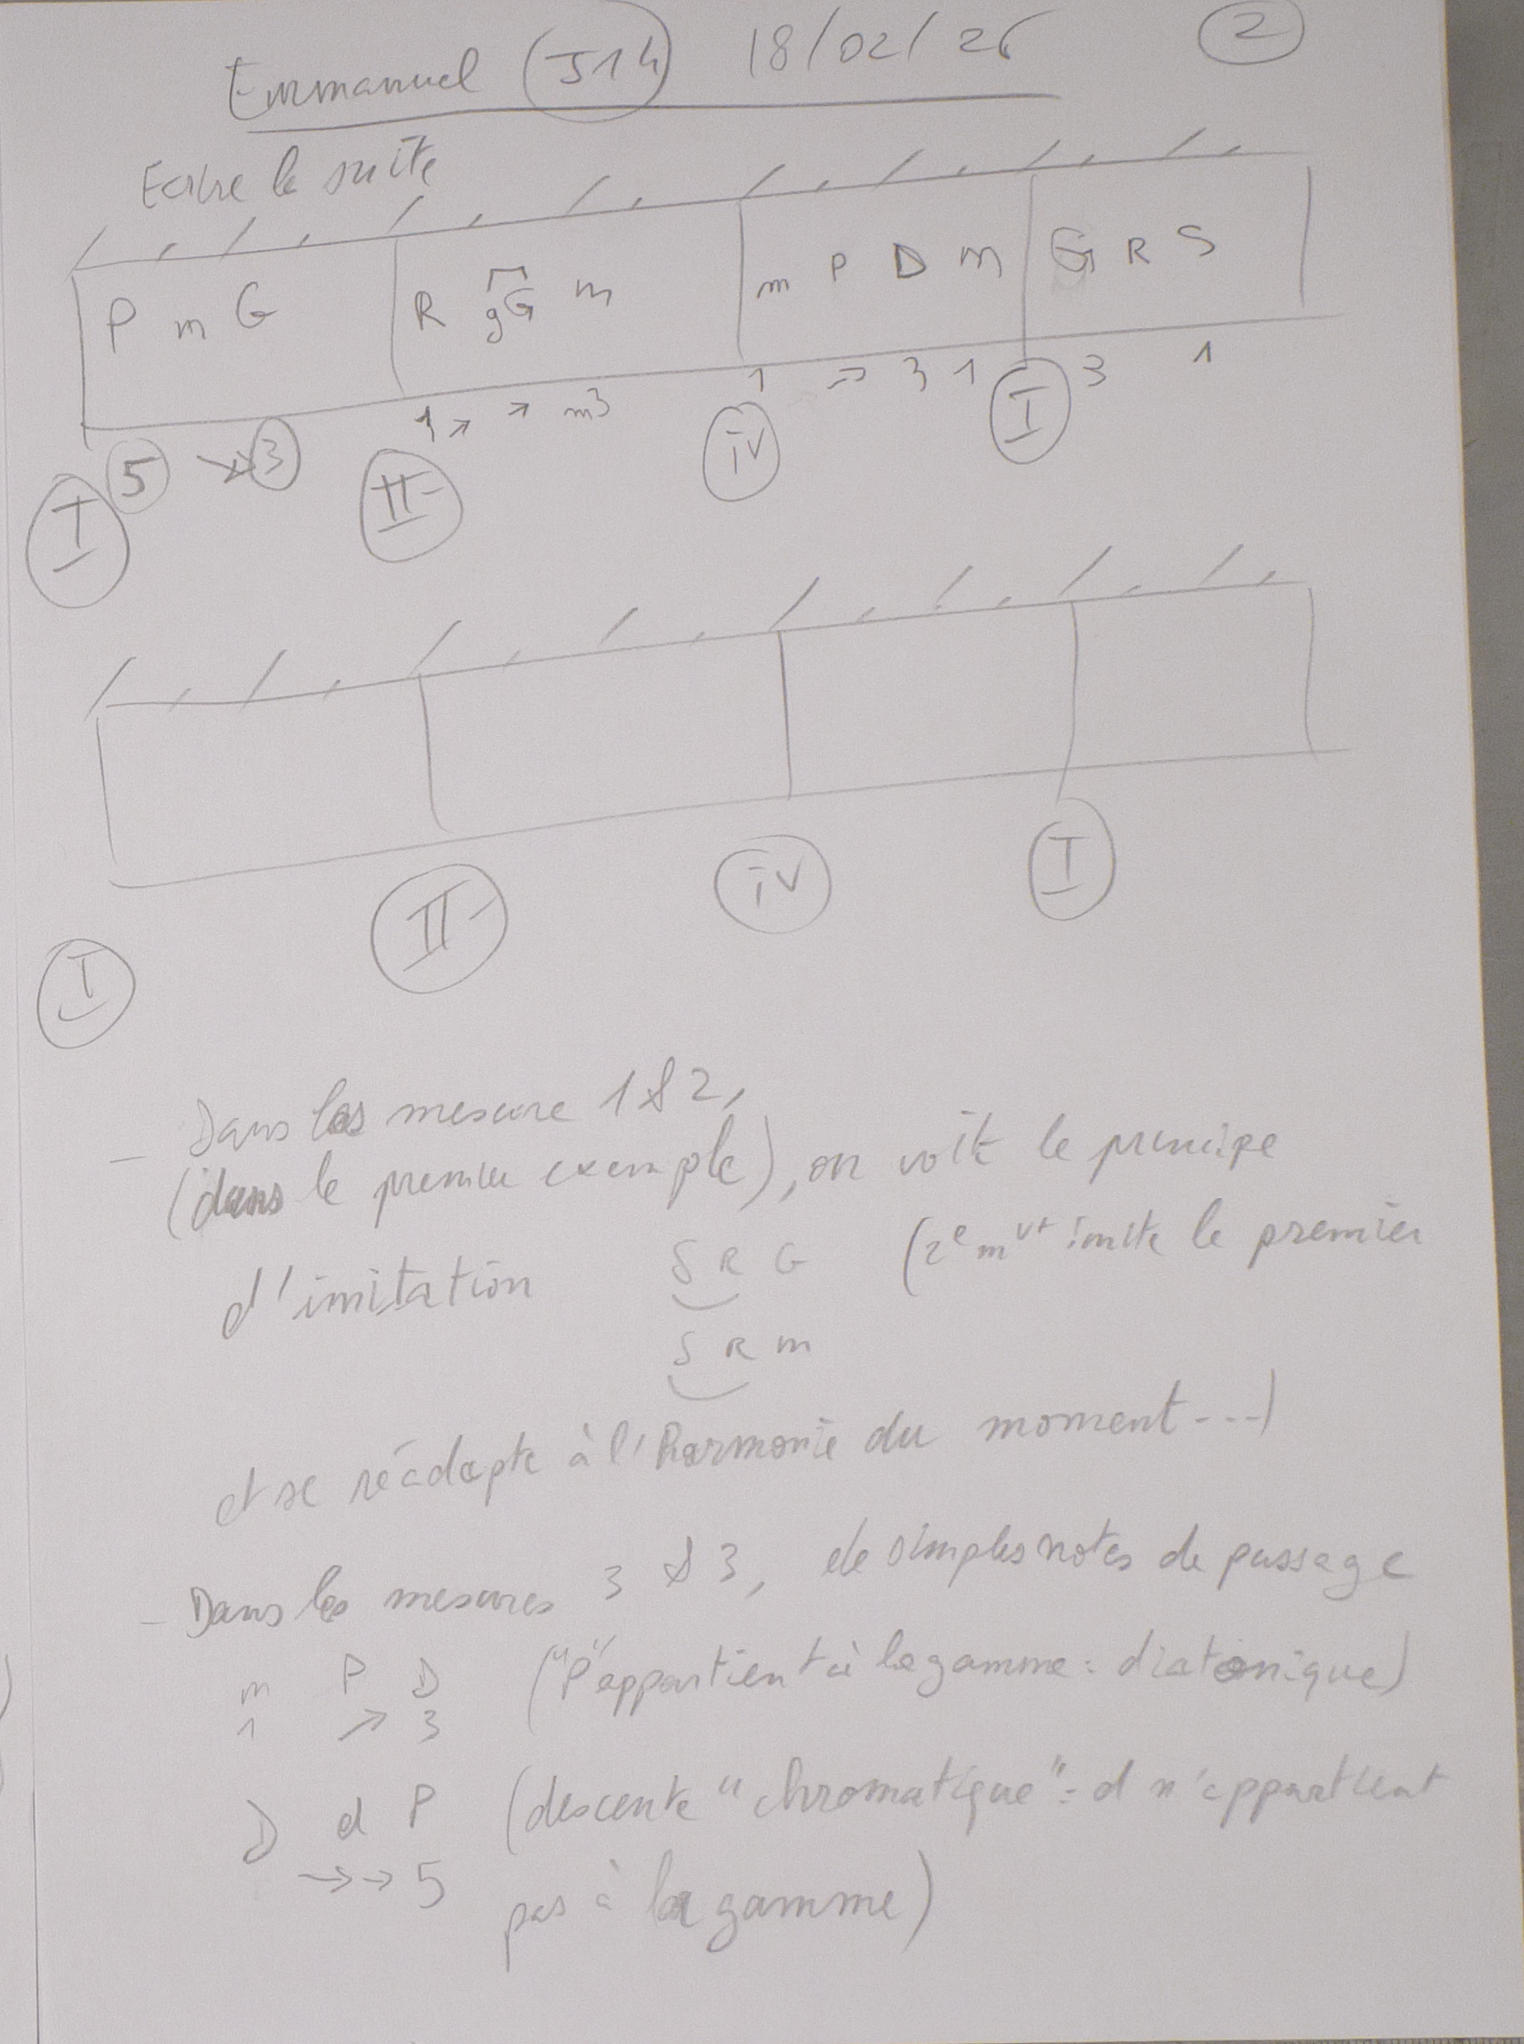 Emmanuel (J14) 18/02/26 2
Ecrire la suite
P m G R gG m m P D m G R S
5 → 3 1 → → m3 1 → 3 1 3 1
I II- iv I
I II- iv I
- Dans les mesure 1 & 2,
(dans le premier exemple), on voit le principe
d'imitation S R G (2e mvt imite le premier
S R m
et se réadapte à l'harmonie du moment---)
- Dans les mesures 3 & 3, de simples notes de passage
m P D ("P" appartient à la gamme : diatonique)
1 → 3
D d P (descente "chromatique" : d n'appartient
→→ 5 pas à la gamme)